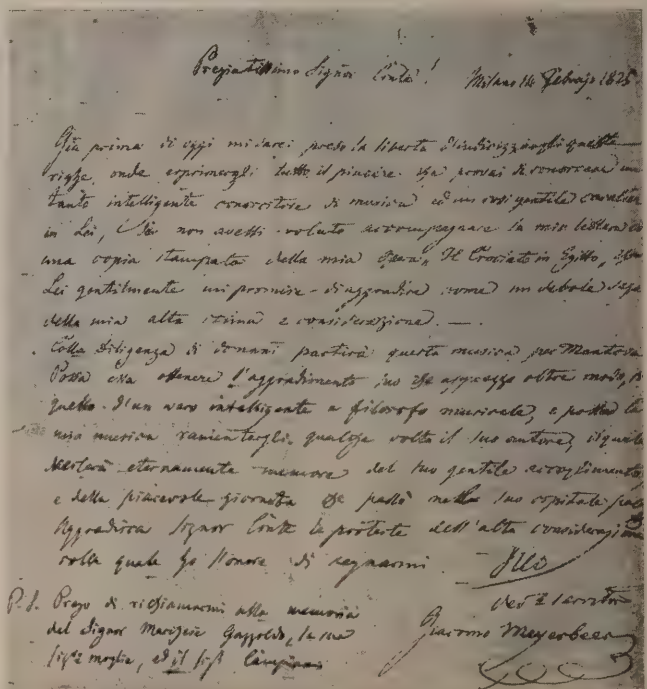 Pregiatissimo Signor Conte!
Milano 14 Febrajo 1825
Già prima di oggi mi sarei preso la libertà d'indirizzargli queste
righe, onde esprimergli tutto il piacere che provai di conoscere un
tanto intelligente conoscitore di musica ed un così gentile cavaliere
in Lei, se non avessi voluto accompagnare la mia lettera di
una copia stampata della mia Il Crociato in Egitto,
Lei gentilmente mi promise di aggradire come un debole
della mia alta stima e considerazione. —
Colla Diligenza di domani partirà questa musica per Mantova
Possa essa ottenere l'aggradimento suo che apprezzo oltre modo,
quello d'un vero intelligente e filosofo musicale, e possa la
mia musica ramentargli qualche volta il suo autore, il quale
resterà eternamente memore del suo gentile accoglimento
e della piacevole giornata che passò nella sua ospitale
Aggradisca Signor Conte le proteste dell'alta considerazione
colla quale ho l'onore di segnarmi
servitore
Giacomo Meyerbeer
P.S. Prego di richiamarmi alla memoria
del Signor Marchese Gazzoldo, la sua
moglie, ed il